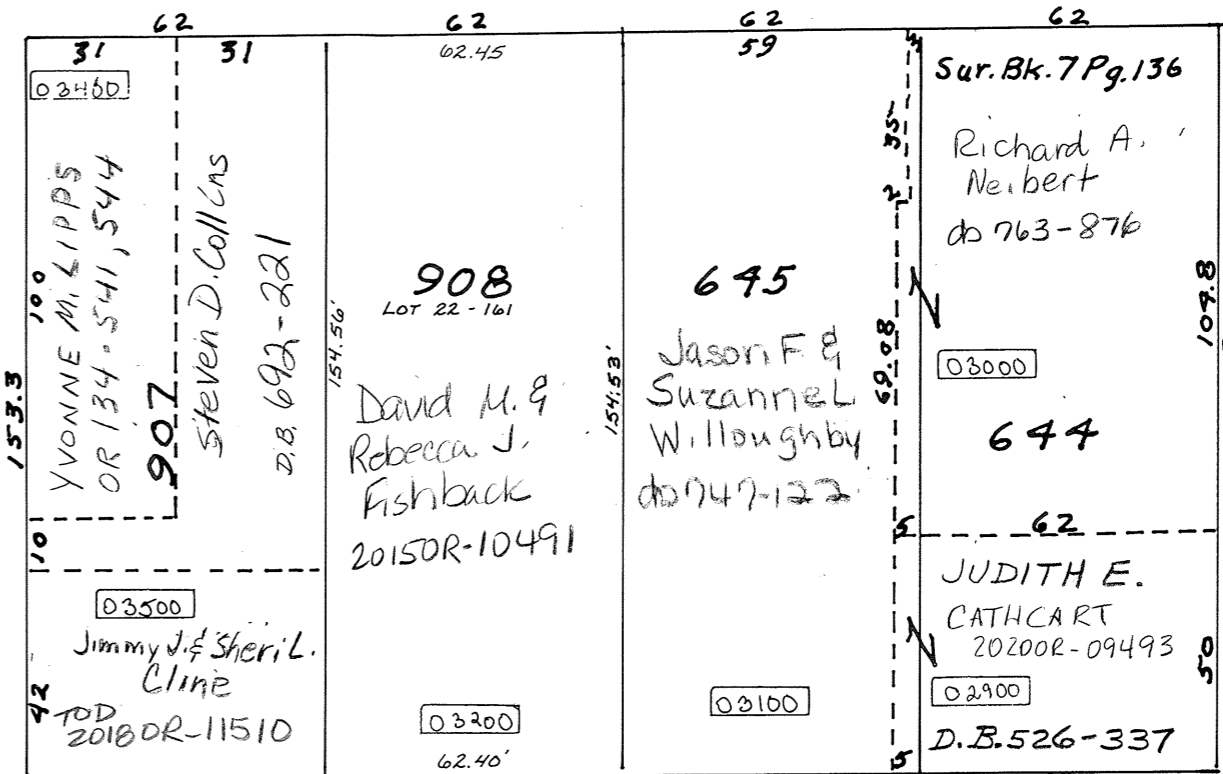 62
62
62
62
31
31
62.45
59
3
03400
YVONNE M. LIPPS
OR 134-541, 544
100
153.3
907
Steven D. Collins
D.B. 692-221
10
03500
Jimmy J. & Sheri L.
Cline
TOD
2018OR-11510
42
154.56'
908
LOT 22-161
David M. &
Rebecca J.
Fishback
2015OR-10491
03200
62.40'
154.53'
645
Jason F &
Suzanne L
Willoughby
db 747-122
03100
35
2
69.08
5
5
Sur. Bk. 7 Pg. 136
Richard A.
Neibert
db 763-876
104.8
03000
644
62
JUDITH E.
CATHCART
2020OR-09493
02900
50
D.B. 526-337